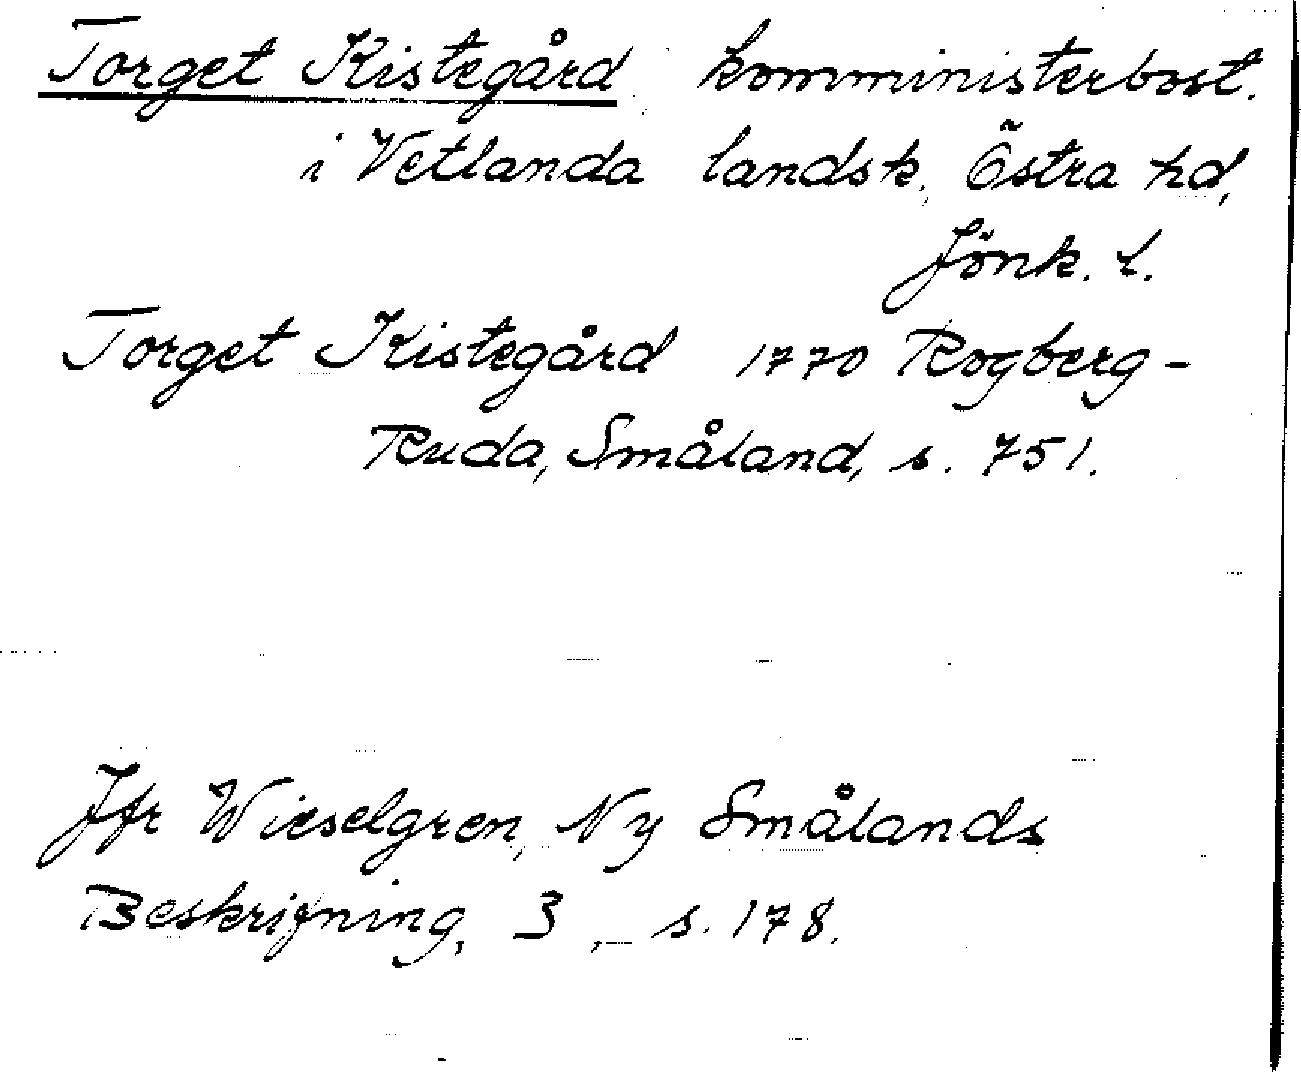 Torget Kistegård komministerbost.
i Vetlanda landsk., Östra hd,
Jönk. l.
Torget Kistegård 1770 Rogberg-
Ruda, Småland, s. 751.
Jfr Wieselgren, Ny Smålands
Beskrifning, 3, s. 178.